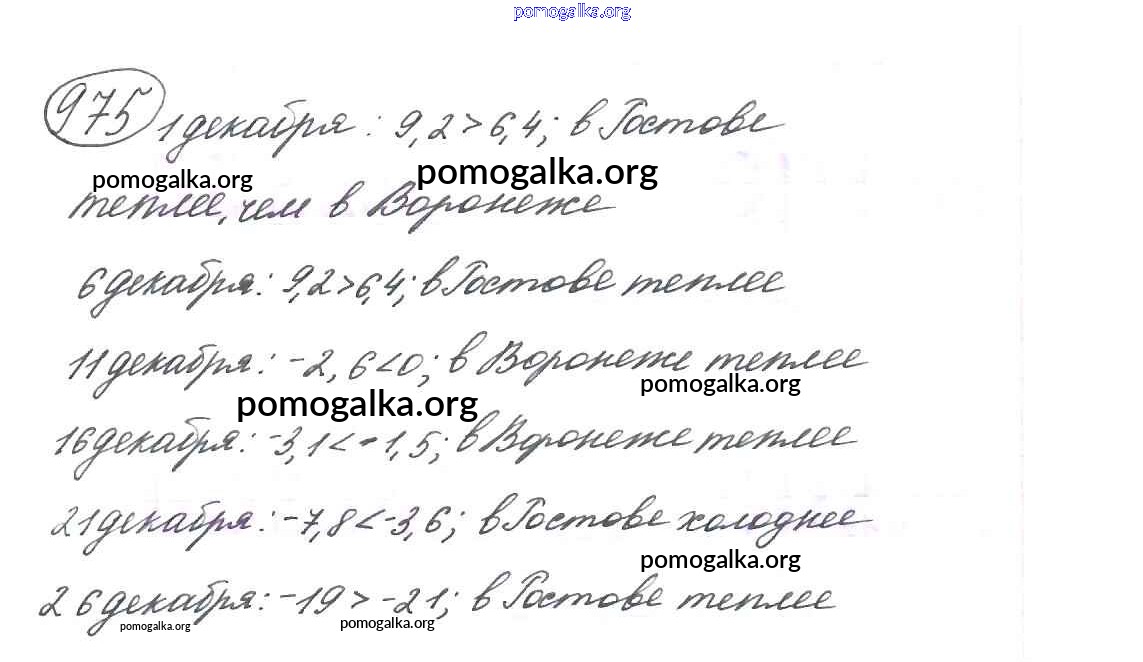 pomogalka.org
975 1 декабря: 9,2 > 6,4; в Ростове
pomogalka.org pomogalka.org
теплее, чем в Воронеже
6 декабря: 9,2 > 6,4; в Ростове теплее
11 декабря: -2,6 < 0; в Воронеже теплее
pomogalka.org
pomogalka.org
16 декабря: -3,1 < -1,5; в Воронеже теплее
21 декабря: -7,8 < -3,6; в Ростове холоднее
pomogalka.org
26 декабря: -19 > -21; в Ростове теплее
pomogalka.org pomogalka.org